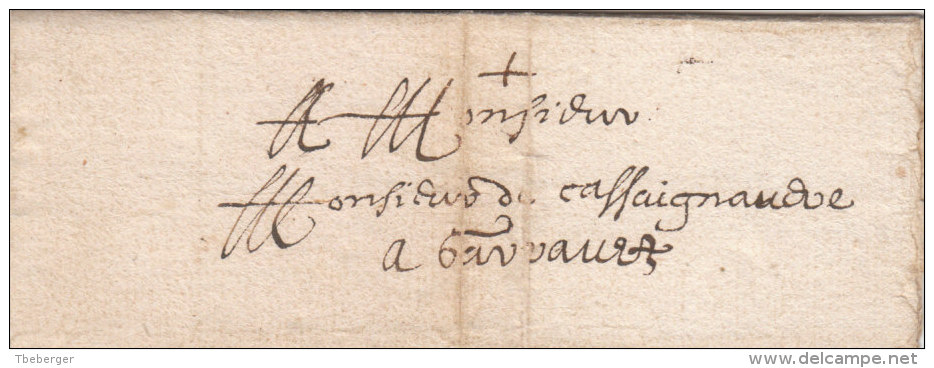 +
A Monsieur
Monsieur de cassaignauere
a
Tbeberger
www.delcampe.net